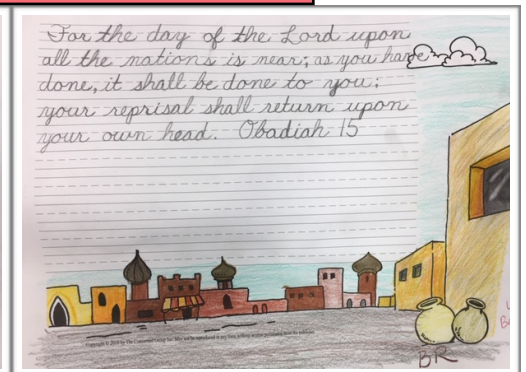 For the day of the Lord upon
all the nations is near; as you have
done, it shall be done to you;
your reprisal shall return upon
your own head. Obadiah 15
BR